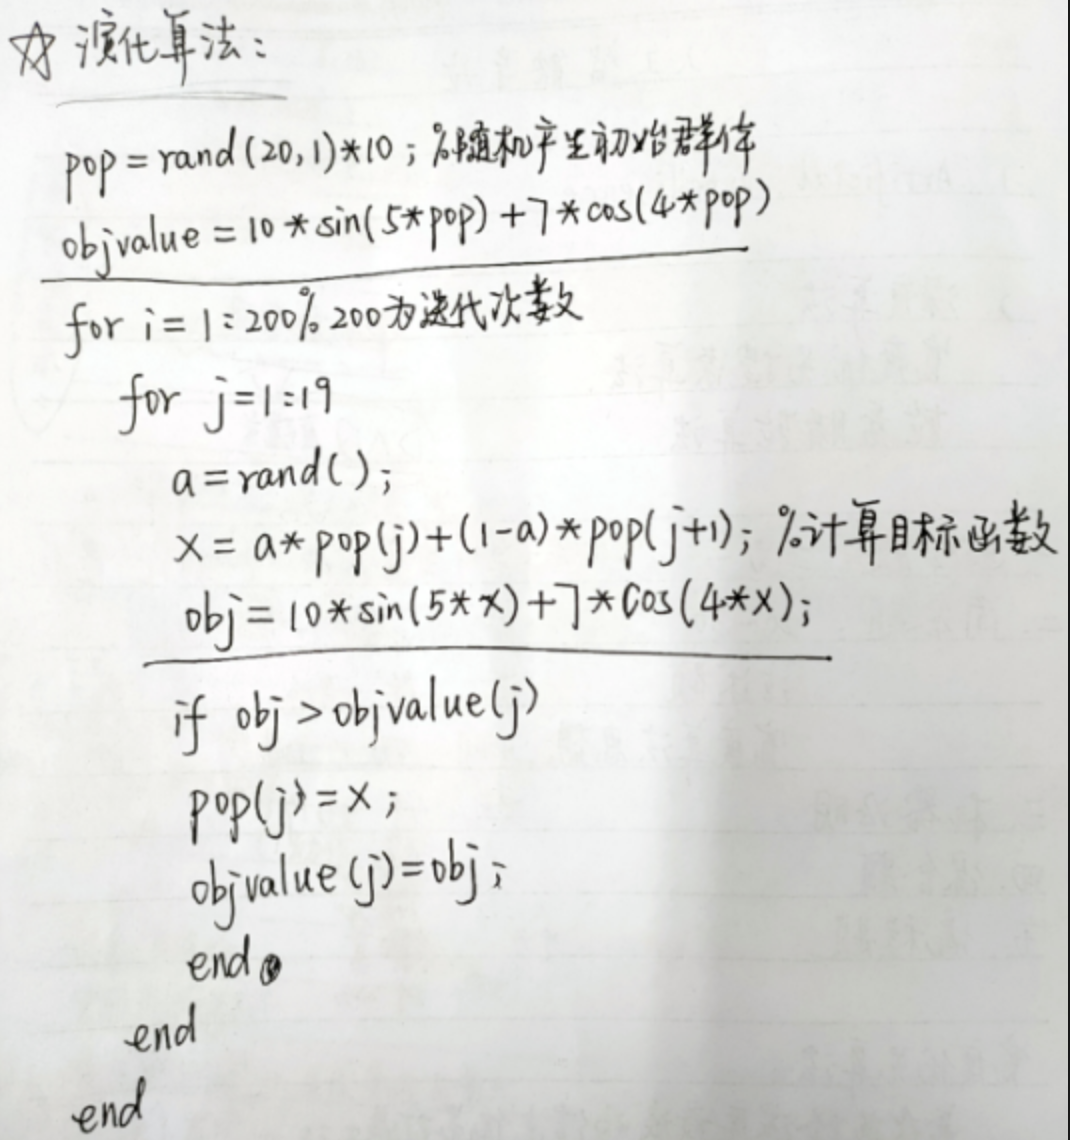 ☆ 演化算法：
pop=rand(20,1)*10；%随机产生初始群体
objvalue=10*sin(5*pop)+7*cos(4*pop)
for i=1:200%200为迭代次数
for j=1:19
a=rand();
x=a*pop(j)+(1-a)*pop(j+1);%计算目标函数
obj=10*sin(5*x)+7*cos(4*x);
if obj>objvalue(j)
pop(j)=x;
objvalue(j)=obj;
end
end
end